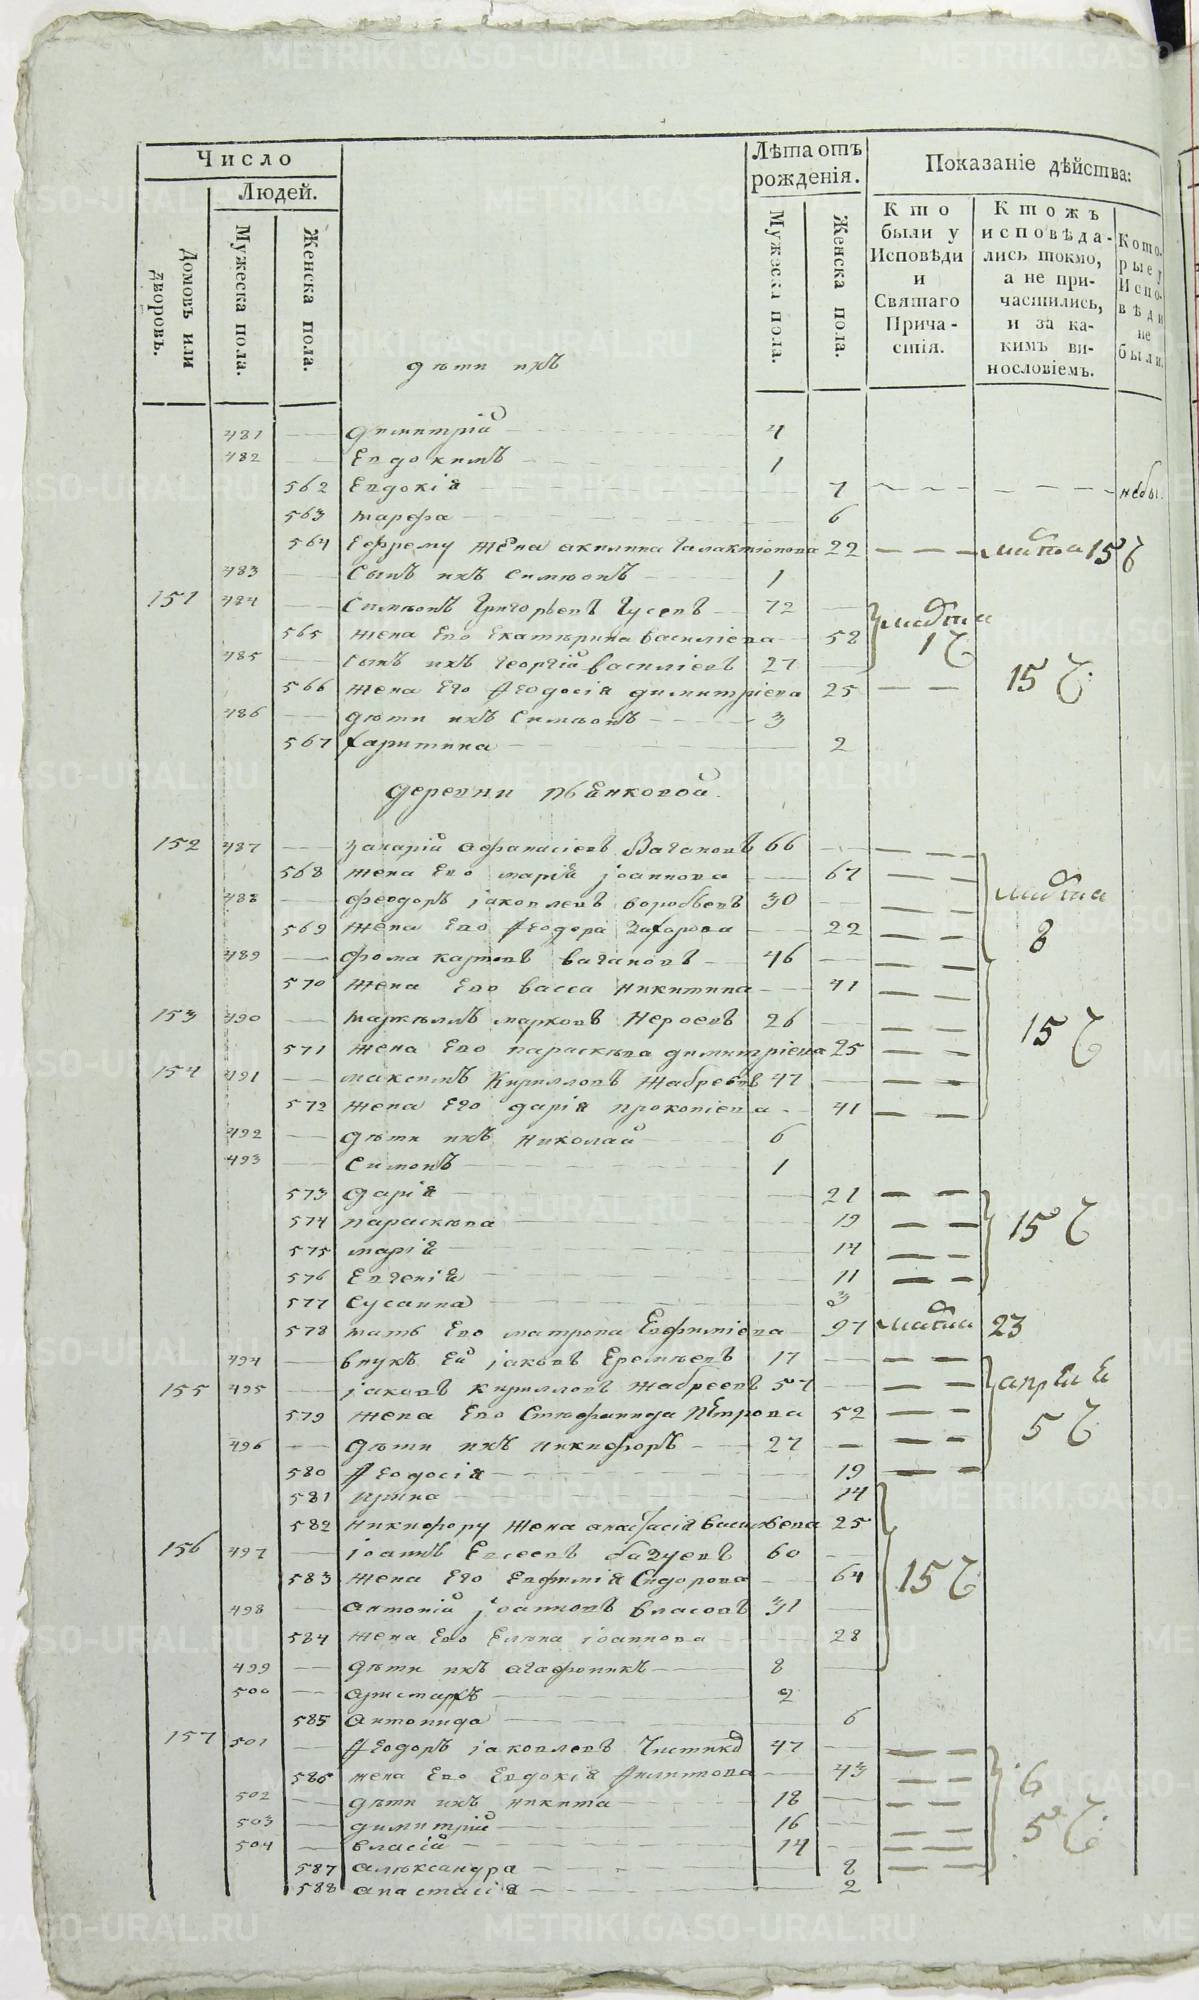 Число
Людей.
Домовъ или дворовъ.
Мужеска пола.
Женска пола.
Лѣта отъ рожденія.
Мужеска пола.
Женска пола.
Показаніе дѣйства:
Кто были у Исповѣди и Святаго Причастія.
Ктожъ исповѣдались токмо, а не причастились, и за какимъ винословіемъ.
Которые у Исповѣди не были.
дѣти ихъ
481 димитрій 4
482 Евдокимъ 1
562 Евдокія 7
563 марѳа 6
564 Ефрему жена акилина галактіонова 22
483 Сынъ ихъ Симеонъ 1
151 484 Симеонъ Григорьевъ Гусевъ 72
565 жена Его Екатерина василіева 58
485 сынъ ихъ георгій василіевъ 27
566 жена Его Ѳеодосія димитріева 25 15
486 дѣти ихъ Симеонъ 3
567 харитина 2
деревни пьЕнковой
152 487 захарій афанасіевъ Вагановъ 66
568 жена Его марія іоаннова 67
488 феодоръ іаковлевъ воробьевъ 30
569 жена Его Ѳеодора Захарова 22 8
489 фома карповъ вагановъ 46
570 жена Его васса никитина 41
153 490 маркеллъ марковъ Нероевъ 26 15
571 жена Его параскева димитріева 25
154 491 максимъ Кирилловъ жабреевъ 47
572 жена Его дарія прокопіева 41
492 дѣти ихъ николай 6
493 Симонъ 1
573 дарія 21
574 параскева 19 15
575 марія 14
576 Евгенія 11
577 Сусанна 3
578 мать Его матрона Евфиміева 97 23
494 внукъ Ей іаковъ Еремѣевъ 17
155 495 іаковъ кирилловъ жабреевъ 57
579 жена Его Стефанида пЕтрова 52 5
496 дѣти ихъ никифоръ 27
580 Ѳеодосія 19
581 ирина 14
582 никифору жена анастасія васильева 25
156 497 іоаннъ Евсеевъ 60
583 жена Его Евфимія Сидорова 64 15
498 антоній іоанновъ власовъ 31
584 жена Его Елена іоаннова 28
499 дѣти ихъ агафоникъ 8
500 аристархъ 2
585 антонида 6
157 501 Ѳеодоръ іаковлевъ 47
586 жена Его Евдокія Филиппова 43 6
502 дѣти ихъ никита 18
503 димитрій 16 5
504 власій 14
587 александра 8
588 анастасія 2
METRIKI.GASO-URAL.RU